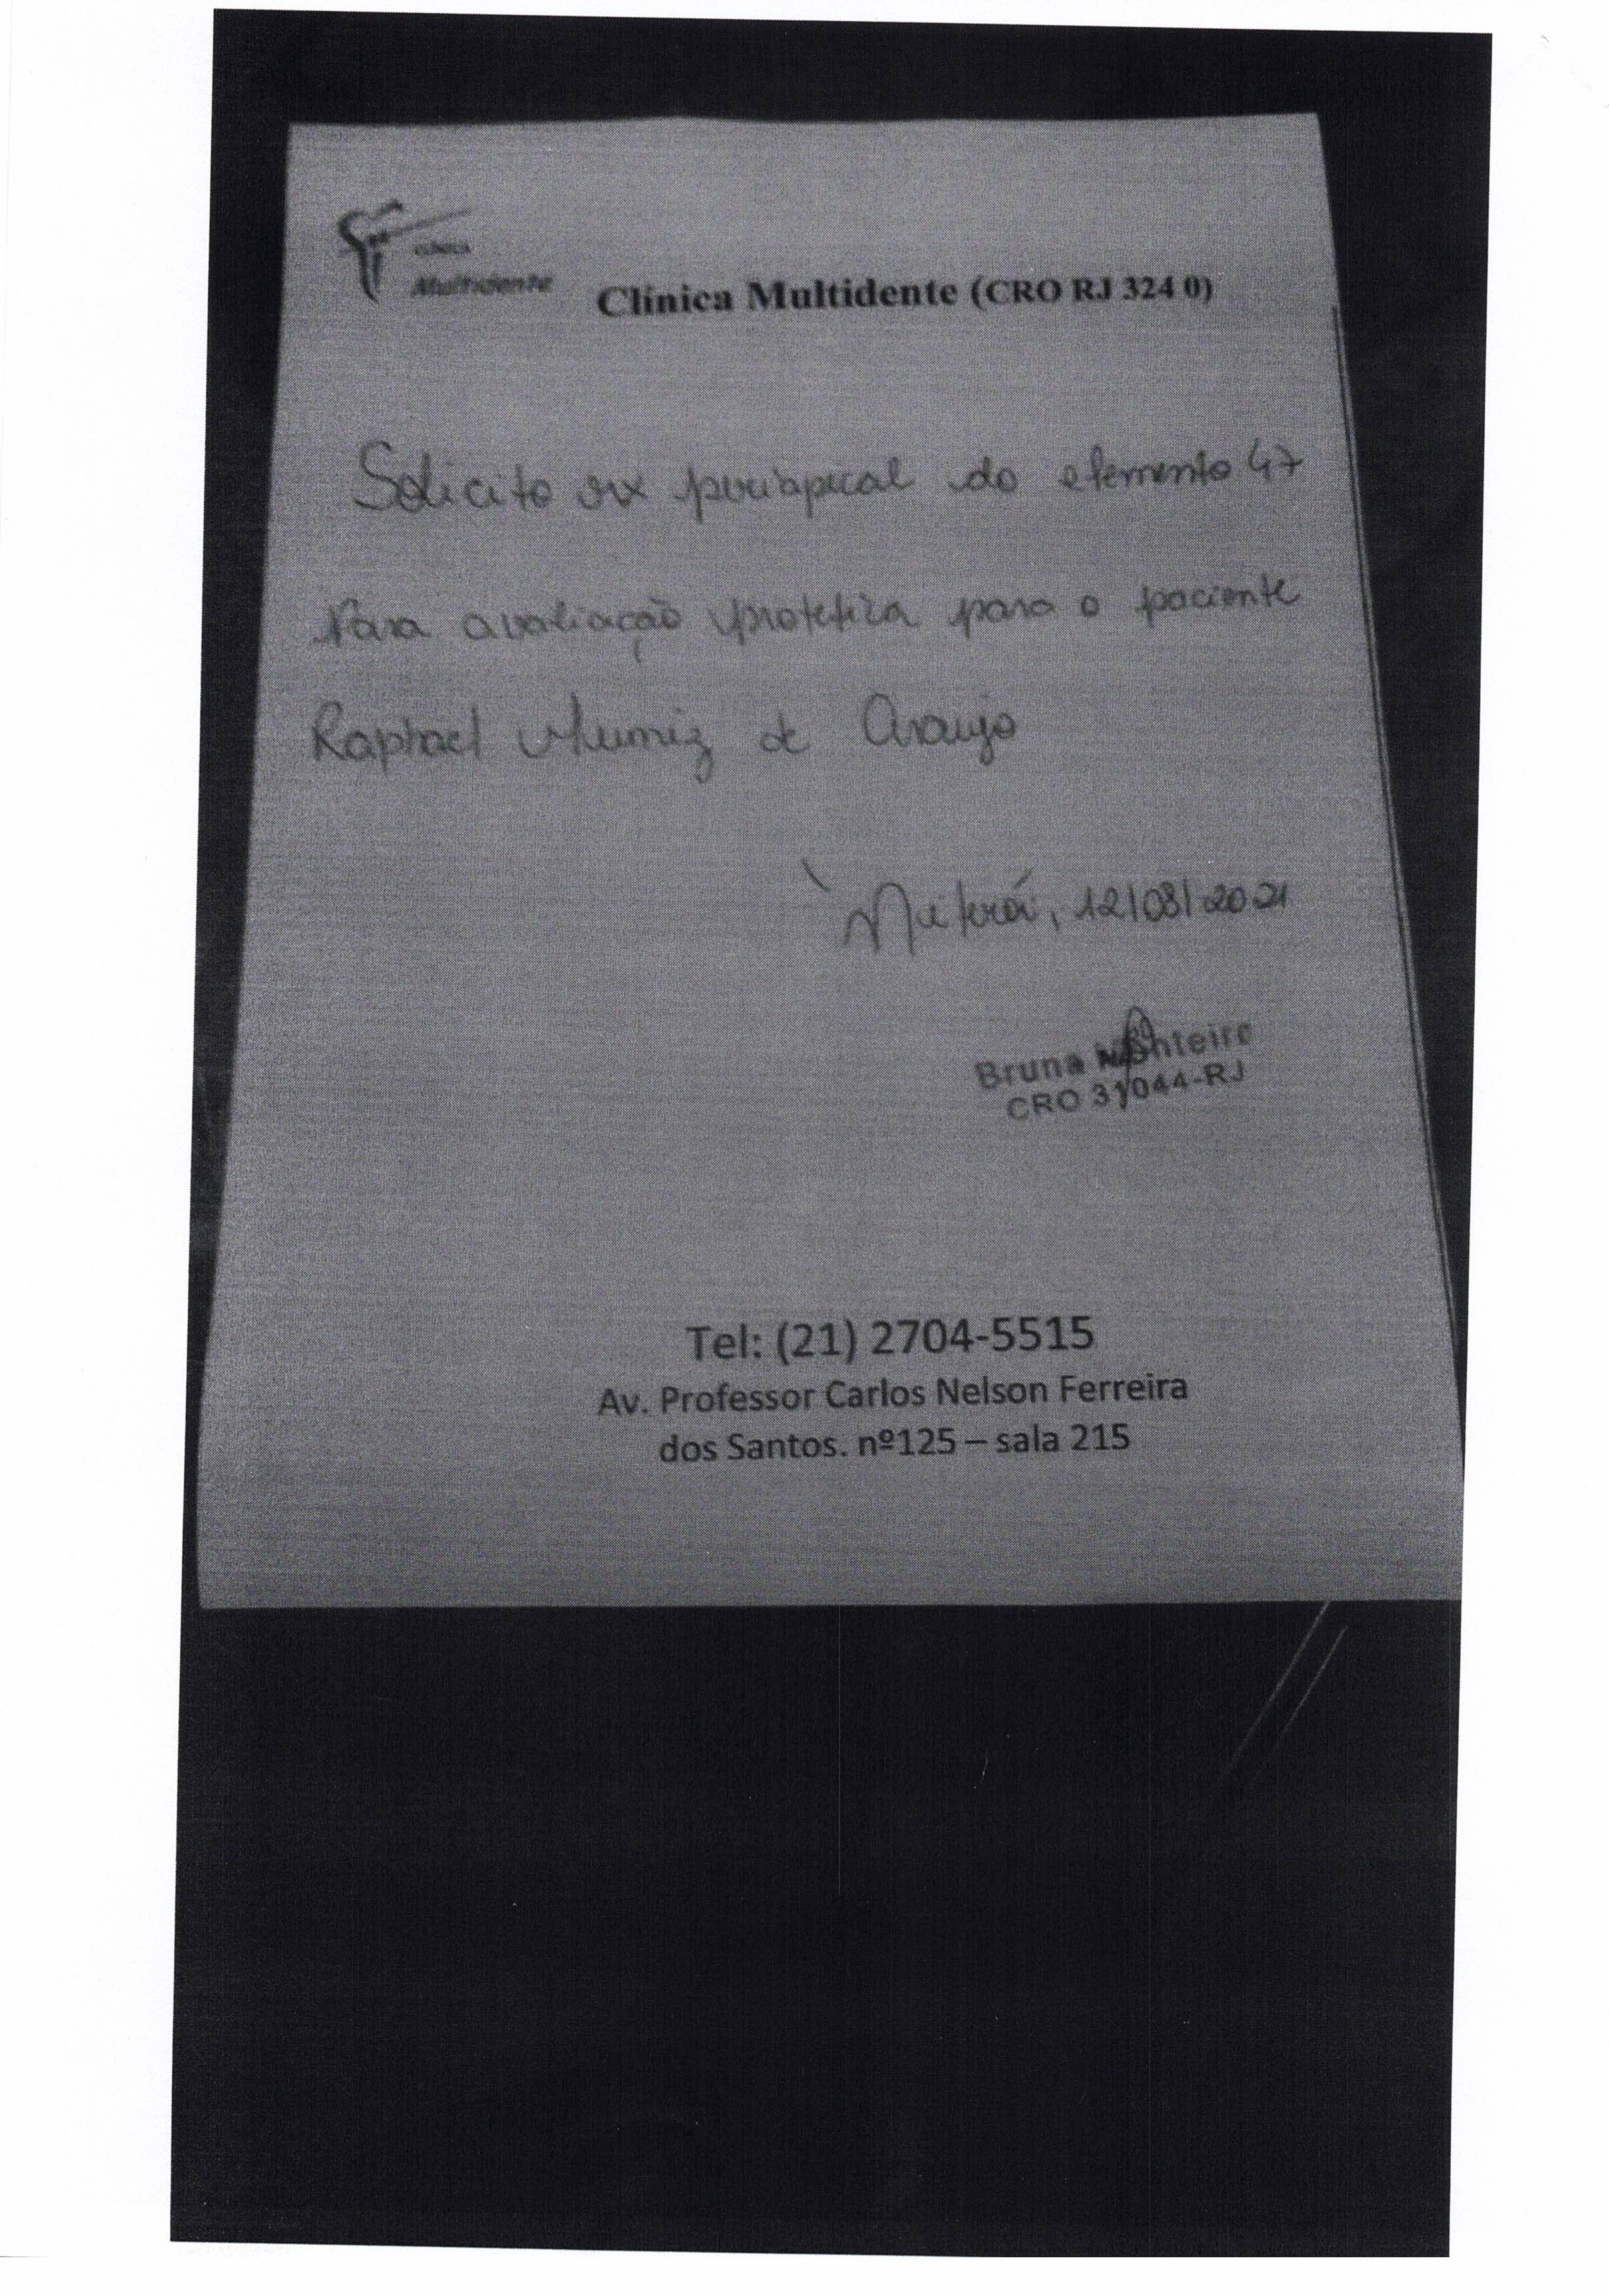 CLÍNICA
Multidente
Clínica Multidente (CRO RJ 324 0)
Solicito rx periapical do elemento 47
Para avaliação protética para o paciente
Raphael Muniz de Araujo
Niterói, 12/03/2021
Bruna Monteiro
CRO 31044-RJ
Tel: (21) 2704-5515
Av. Professor Carlos Nelson Ferreira
dos Santos. nº125 – sala 215